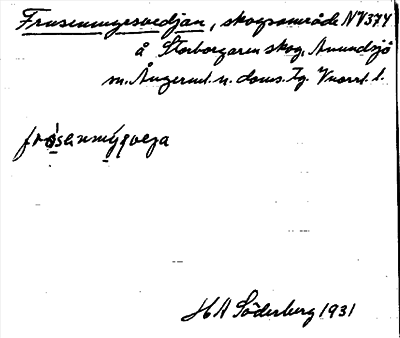 Frusenmyrsvedjan, skogsområde NV374
å Storborgaren skog, Anundsjö
m. Ångerml. n. doms. Tg. Vnorrl. l.
HA Söderberg 1931